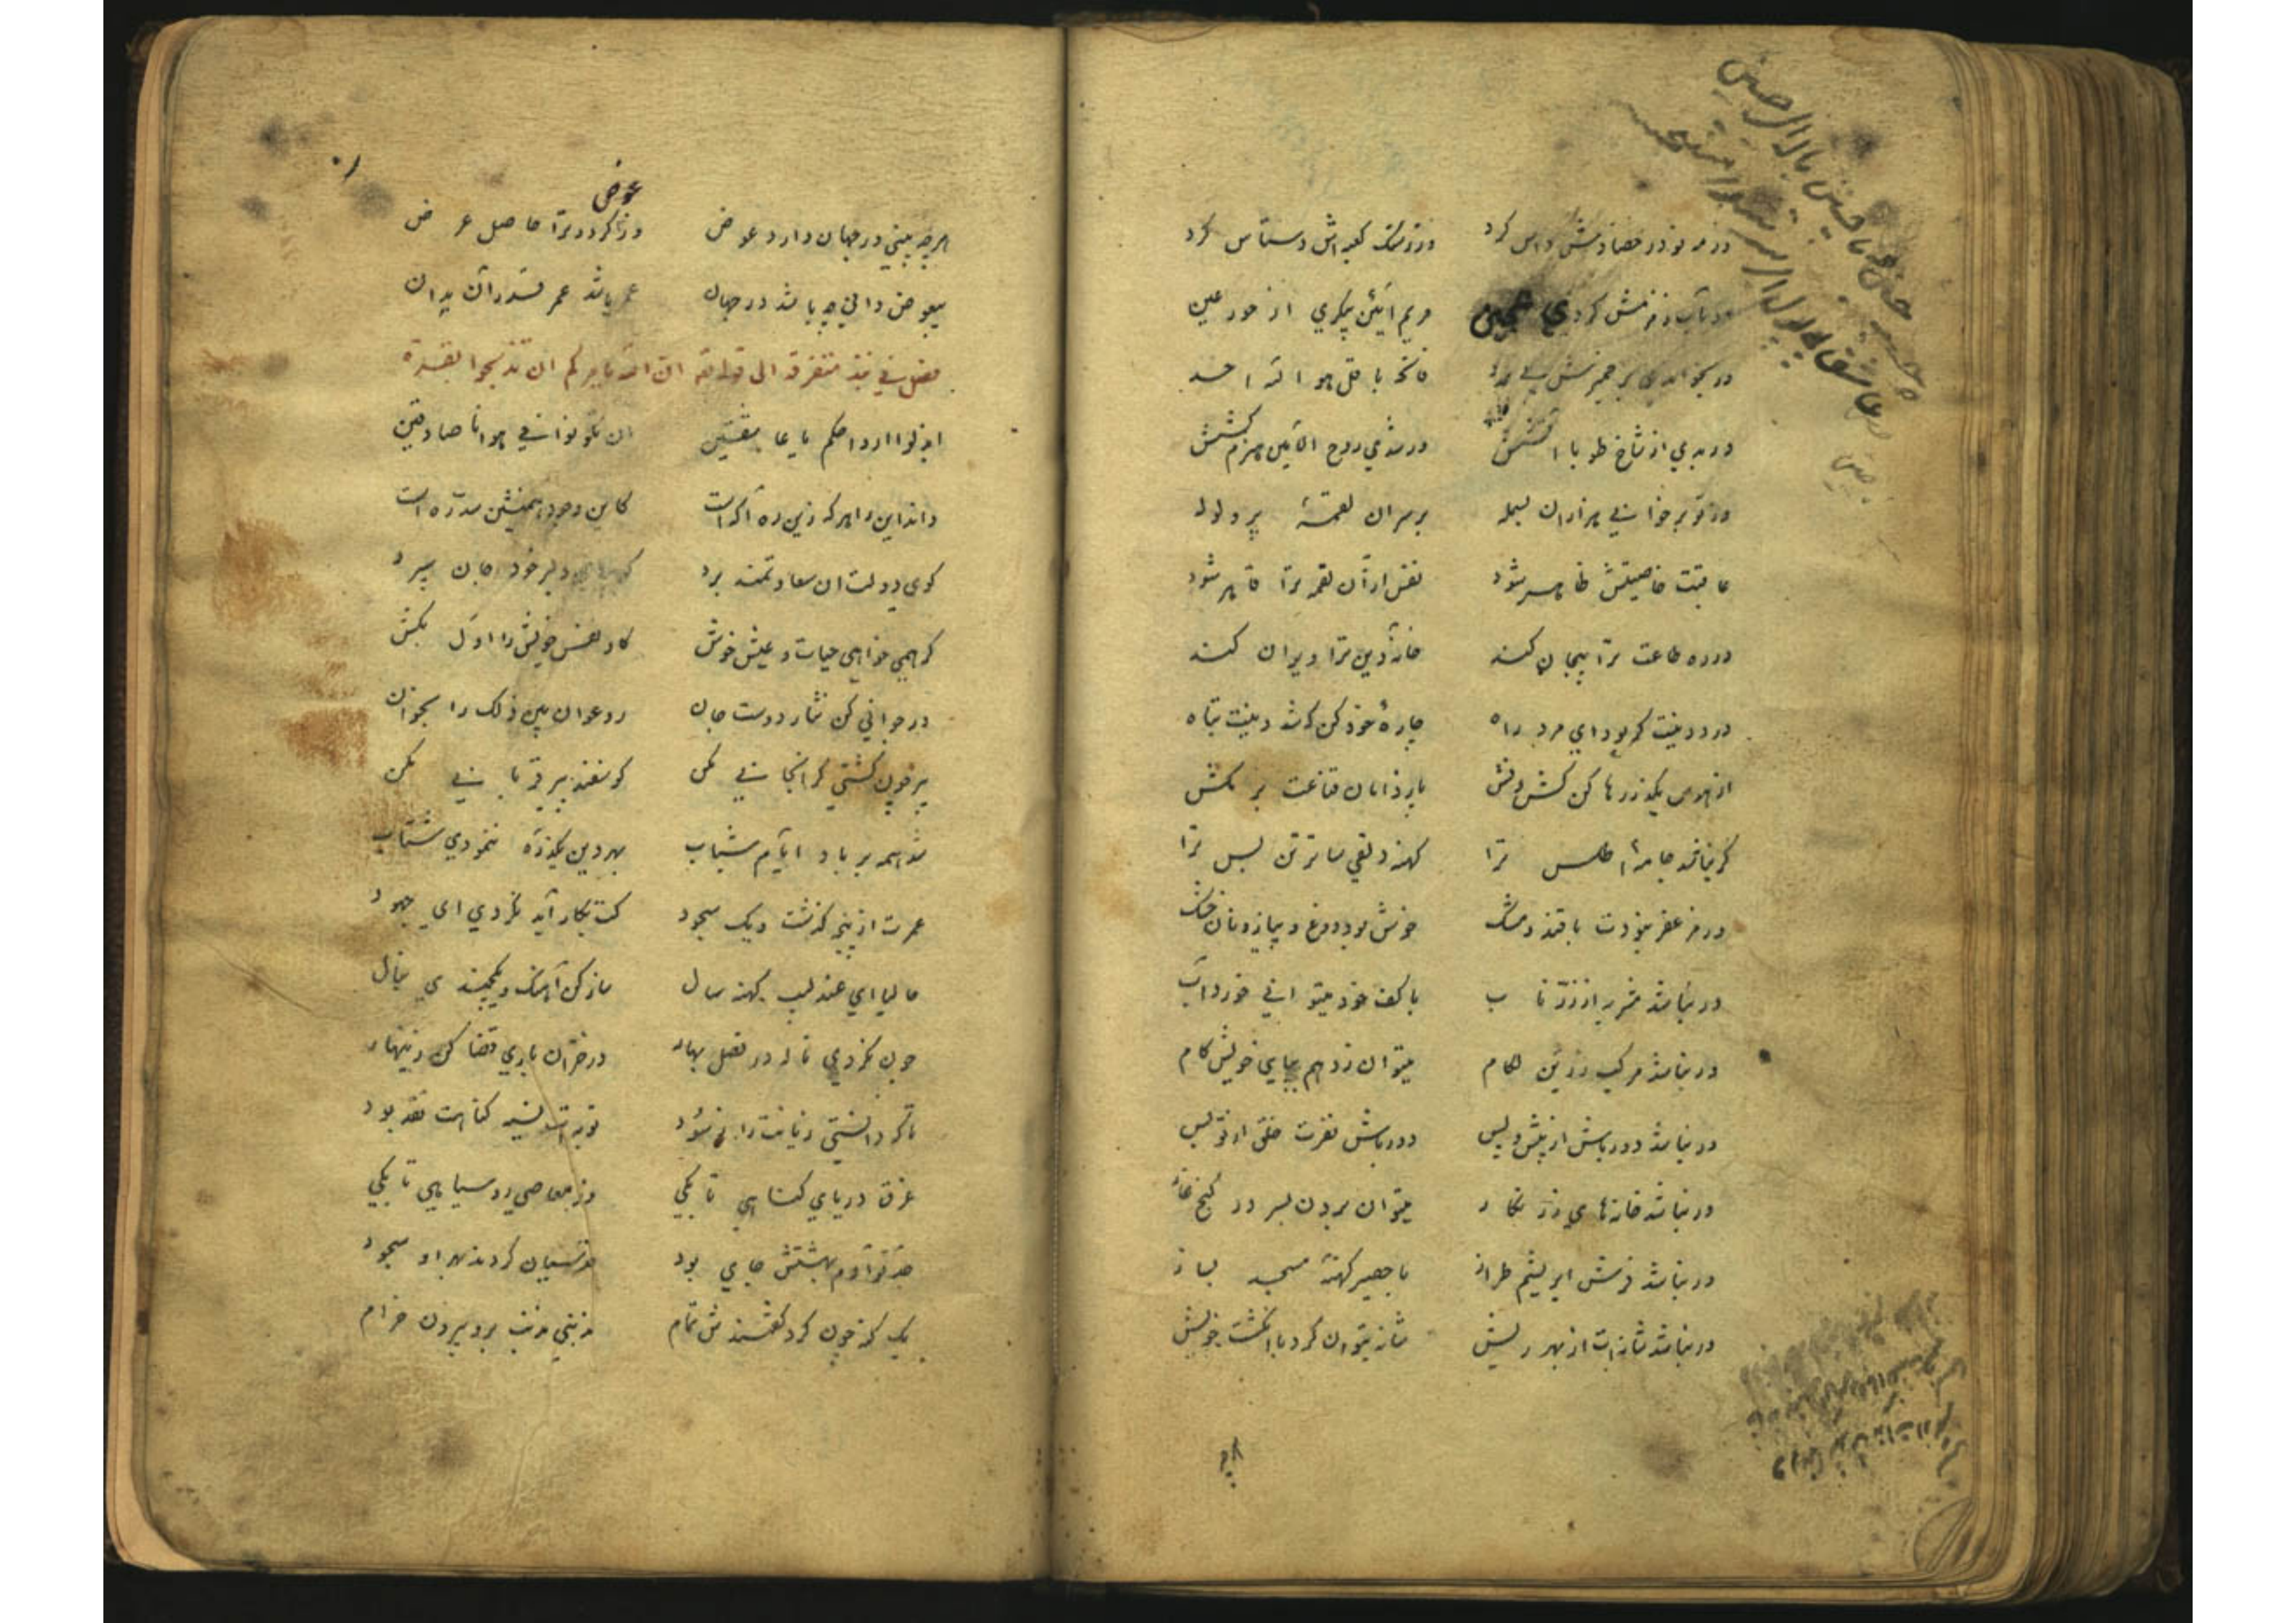 ور مه نو در حصادش داس کرد    ور ز سنگ کعبه‌اش دستاس کرد
ور بآب زمزمش کردی عجین    مریم آئین پیکری از حور عین
ور بخواندی بر خمیرش بی عدد    فاتحه با قل هو الله احد
ور بدی از شاخ طوبا آتشش    ور شدی روح الامین هیزم کشش
ور تو برخوانی هزاران بسمله    بر سر آن لقمهٔ پر ولوله
عاقبت خاصیتش ظاهر شود    نفس از آن لقمه ترا قاهر شود
در ره طاعت ترا بیجان کند    خانهٔ دین ترا ویران کند
درد دینت گر بود ای مرد راه    چارهٔ خود کن که شد دینت تباه
از هوس بگذر رها کن کش و فش    پا ز دامان قناعت بر مکش
گر نباشد جامهٔ اطلس ترا    کهنه دلقی ساتر تن بس ترا
ور مزعفر نبودت با قند و مشک    خوش بود دوغ و پیاز و نان خشک
ور نباشد مشربه از زر ناب    با کف خود میتوانی خورد آب
ور نباشد مرکب زرین لکام    میتوان زد هم بپای خویش کام
ور نباشد دورباش از پیش و پس    دورباش نفرت خلق از تو بس
ور نباشد خانه‌های زر نکار    میتوان بردن بسر در کنج غار
ور نباشد فرش ابریشم طراز    با حصیر کهنهٔ مسجد بساز
ور نباشد شانه‌ات از بهر ریش    شانه بتوان کرد با انکشت خویش
عوض
هر چه بینی در جهان دارد عوض    وز عوض کردد ترا حاصل عرض
بیعوض دانی چه باشد در جهان    عمر باشد عمر قدر آن بدان
فصل فی نبذ متفرقة الی قوله ان الله یامرکم ان تذبحوا بقرة
ابذلوا ارواحکم یا عاشقین    ان تکونوا فی هوانا صادقین
داند این را هر که زین ره آگه است    کاین وجود و هستیش سد ره است
کوی دولت آن سعادتمند برد    که بپای دلبر خود جان سپرد
کر همی خواهی حیات و عیش خوش    کاو نفس خویش را اول بکش
در جوانی کن نثار دوست جان    رو عوان بین ذلک را بخوان
پیر چون کشتی کران جانی مکن    کوسفند پیر قربانی مکن
شد همه بر باد ایام شباب    بهر دین یکذره ننمودی شتاب
عمرت از پنجه کذشت و یک سجود    کت بکار آید نکردی ای جهود
حالیا ای عندلیب کهنه سال    ساز کن افغان و یکچندی بنال
چون نکردی ناله در فصل بهار    در خزان باری قضا کن زینهار
تا که دانستی زیانت را ز سود    توبه‌ات نسیه کناهت نقد بود
غرق دریای کناهی تا بکی    وز معاصی روسیاهی تا بکی
جد تو آدم بهشتش جای بود    قدسیان کردند بهر او سجود
یک کنه چون کرد کفتندش تمام    مذنبی مذنب برو بیرون خرام